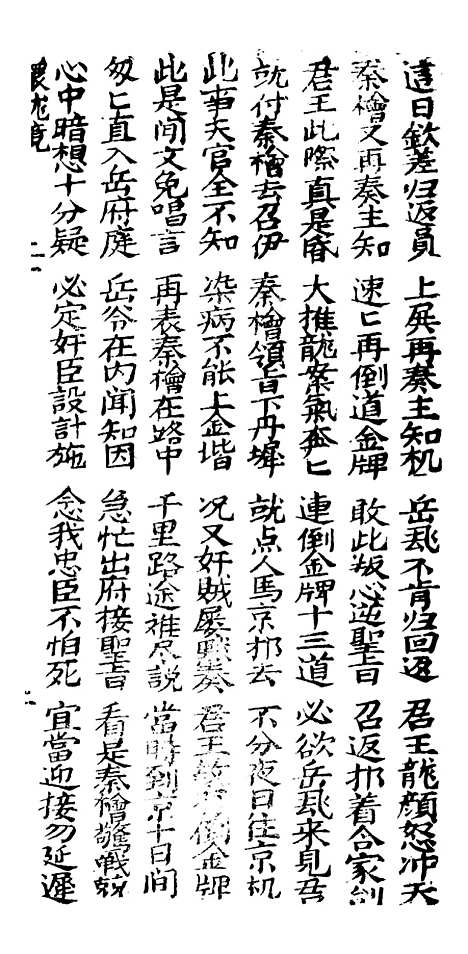 這日欽差归返員 上殿再奏主知机 岳飛不肯归回返 君王龍顏怒冲天
秦檜又再奏主知 速匕再倒道金牌 敢此叛心逆聖旨 召返邦着合家
君王此際真是昏 大推龍案氣奔匕 連倒金牌十三道 必欲岳飛来見吾
就付秦檜去召伊 秦檜領旨下丹墀 就点人馬京邦去 不分夜日往京机
此事天官全不知 染病不能上金堦 况又奸賊屡奏 君王倒金牌
此是间文免唱言 再表秦檜在路中 千里路途难尽說 當時到京十日间
匆匕直入岳府庭 岳爷在内聞知因 急忙出府接聖旨 看是秦檜驚戰兢
心中暗想十分疑 必定奸臣設計施 念我忠臣不怕死 宜當迎接勿延遲